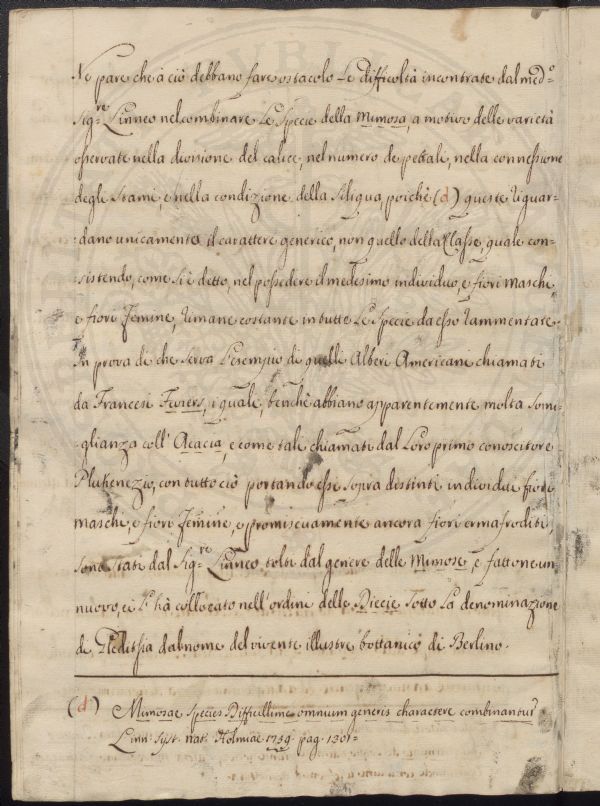 Ne pare che à ciò debbano fare ostacolo Le difficoltà incontrate dal medº:
Sigre: Linneo nel combinare Le Specie della Mimosa, a motivo delle varietà
osservate nella divisione del calice, nel numero de petali, nella connessione
degli Stami, e nella condizione della Siliqua poichè (d) queste riguar-
:dano unicamente il carattere generico, non quello della Classe, quale con-
:sistendo, come si è detto, nel possedere il medesimo individuo, e fiori maschi,
e fiori femine, rimane costante in tutte Le Specie da esso rammentate.
In prova di che serva l'esempio di quelli Alberi Americani chiamati
da Francesi Feviers, i quali, benchè abbiano apparentemente molta somi-
:glianza coll' Acacia, e come tali chiamati dal Loro primo conoscitore
Plukenezio, con tutto ciò portando essi sopra distinti individui fiori
maschi, e fiori femine, e promiscuamente ancora fiori ermafroditi,
sono stati dal Sigre: Linneo tolti dal genere delle Mimose, e fattone un
nuovo, ei l'hà collocato nell'ordini delle Diecie sotto La denominazione
di Gleditsia dal nome del vivente illustre bottanico di Berlino.
(d) Mimosae Species Difficillime omnium generis charactere combinantur
Linn: Syst: nat: Holmiae 1759. pag: 1301=